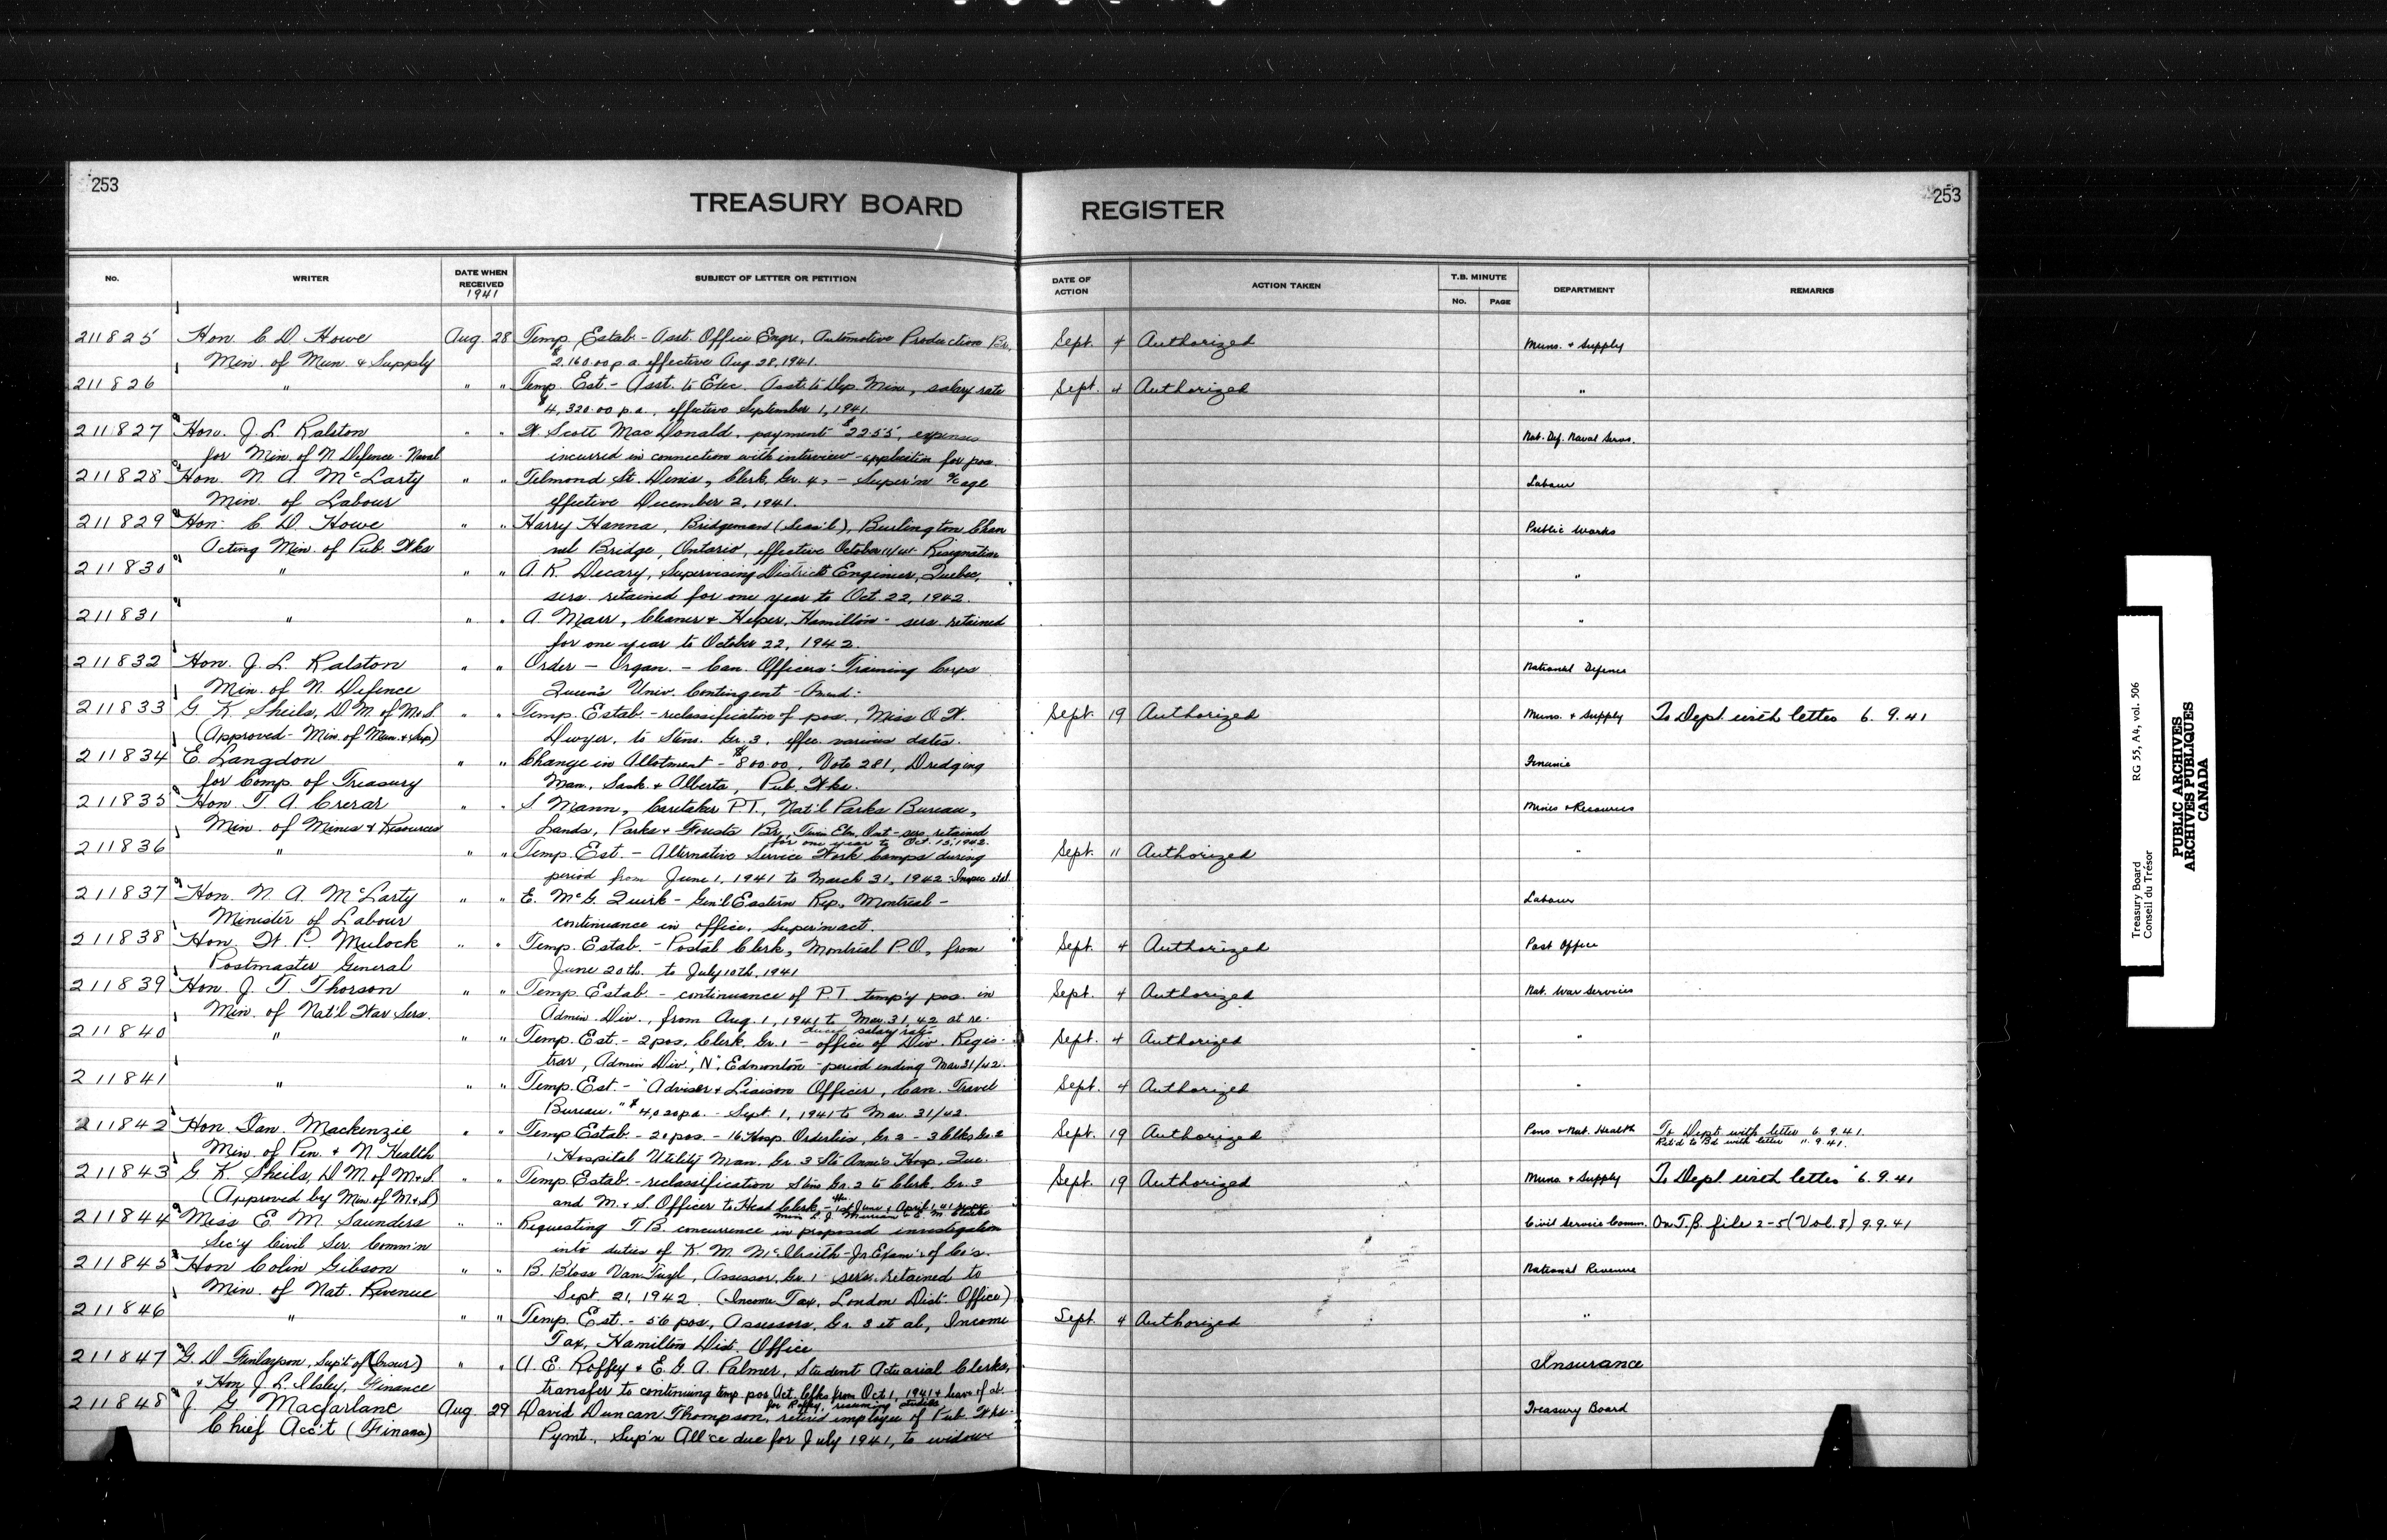 253
253
TREASURY BOARD REGISTER
No. WRITER DATE WHEN RECEIVED 1941 SUBJECT OF LETTER OR PETITION DATE OF ACTION ACTION TAKEN T.B. MINUTE No. PAGE DEPARTMENT REMARKS
211825 Hon. C. D. Howe Aug. 28 Temp. Estab. - Asst. Office Engr., Automotive Production Br., Sept. 4 Authorized Muns. & Supply
Min. of Mun. & Supply $2,160.00 p.a. effective Aug. 28, 1941.
211826 " " " Temp. Est. - Asst. to Exec. Asst. to Dep. Min., salary rate Sept. 4 Authorized "
$4,320.00 p.a., effective September 1, 1941.
211827 Hon. J. L. Ralston " " W. Scott MacDonald, payment $22.55, expenses Nat. Def. Naval Servs.
for Min. of N. Defence - Naval incurred in connection with interview - application for pos.
211828 Hon. N. A. McLarty " " Telmond St. Denis, Clerk, Gr. 4, - Super'n a/c age Labour
Min. of Labour effective December 2, 1941.
211829 Hon. C. D. Howe " " Harry Hanna, Bridgeman (Seas'l), Burlington Chan Public Works
Acting Min. of Pub. Wks nel Bridge, Ontario, effective October Resignation
211830 " " " A. R. Decary, Supervising District Engineer, Quebec, "
sers. retained for one year to Oct. 22, 1942.
211831 " " " A. Marr, Cleaner & Helper, Hamilton - sers. retained "
for one year to October 22, 1942.
211832 Hon. J. L. Ralston " " Order - Organ. - Can. Officers' Training Corps National Defence
Min. of N. Defence Queen's Univ. Contingent - Amend:
211833 G. K. Sheils, D.M. of M&S. " " Temp. Estab. - reclassification of pos., Miss O. W. Sept. 19 Authorized Muns. & Supply To Dept. with letter 6.9.41
(Approved - Min. of Mun. & Sup) Dwyer, to Steno. Gr. 3, effec. various dates.
211834 E. Langdon " " Change in Allotment - $800.00, Vote 281, Dredging Finance
for Comp. of Treasury Man., Sask. & Alberta, Pub. Wks.
211835 Hon. T. A. Crerar " " S. Mann, Caretaker P.T., Nat'l Parks Bureau, Mines & Resources
Min. of Mines & Resources Lands, Parks & Forests Br., Twin Elm, Ont - sers. retained
for one year to Oct. 15, 1942.
211836 " " " Temp. Est. - Alternative Service Work Camps during Sept. 11 Authorized "
period from June 1, 1941 to March 31, 1942
211837 Hon. N. A. McLarty " " E. McG. Quirk - Gen'l Eastern Rep., Montreal - Labour
Minister of Labour continuance in office, Super'n act.
211838 Hon. W. P. Mulock " " Temp. Estab. - Postal Clerk, Montreal P.O., from Sept. 4 Authorized Post Office
Postmaster General June 20th. to July 10th, 1941
211839 Hon. J. T. Thorson " " Temp. Estab. - continuance of P.T. temp'y pos. in Sept. 4 Authorized Nat. War Services
Min. of Nat'l War Sers. Admin. Div., from Aug. 1, 1941 to Mar. 31, 42 at re-
duced salary rate
211840 " " " Temp. Est. - 2 pos. Clerk, Gr. 1 - office of Div. Regis- Sept. 4 Authorized "
trar, Admin Div. "N", Edmonton - period ending Mar 31/42.
211841 " " " Temp. Est. - "Adviser & Liaison Officer, Can. Travel Sept. 4 Authorized "
Bureau." $4,020 p.a. - Sept. 1, 1941 to Mar. 31/42.
211842 Hon. Ian. Mackenzie " " Temp. Estab. - 20 pos. - 16 Hosp. Orderlies, Gr 2 - 3 Clks Gr. 2 Sept. 19 Authorized Pens. & Nat. Health To Dept. with letter 6.9.41.
Ret'd to Bd with letter 11.9.41.
Min. of Pen. & N. Health 1 Hospital Utility Man. Gr. 3 Ste Anne's Hosp. Que.
211843 G. K. Sheils, D.M. of M&S. " " Temp. Estab. - reclassification Steno Gr. 2 to Clerk Gr. 3 Sept. 19 Authorized Muns. & Supply To Dept. with letter 6.9.41
(Approved by Min. of M&S) and M. & S. Officer to Head Clerk, - 1st June & April 1, 41
211844 Miss E. M. Saunders " " Requesting T.B. concurrence in proposed investigation Civil Service Comm. On T.B. file 2-5 (Vol. 8) 9.9.41
Sec'y Civil Ser. Comm'n into duties of K. M. McIlraith - Jr Exam'r of Co's.
211845 Hon Colin Gibson " " B. Bloss VanTuyl, Assessor, Gr. 1 - sers. retained to National Revenue
Min. of Nat. Revenue Sept. 21, 1942. (Income Tax, London Dist. Office)
211846 " " " Temp. Est. - 56 pos., Assessors, Gr. 3 et al, Income Sept. 4 Authorized "
Tax, Hamilton Dist. Office
211847 G. D. Finlayson, Sup't of (Insur) " " A. E. Roffey & E. G. A. Palmer, Student Actuarial Clerks, Insurance
& Hon. J. L. Ilsley, Finance transfer to continuing temp. pos. Act. Clks from Oct 1, 1941 & leave of ab.
for Roffey, resuming studies
211848 J. G. Macfarlane Aug. 29 David Duncan Thompson, retired employee of Pub. Wks. Treasury Board
Chief Acc't (Finance) Pymt., Sup'n All'ce due for July 1941, to widow
Treasury Board RG 55, A4, vol. 506
Conseil du Trésor
PUBLIC ARCHIVES
ARCHIVES PUBLIQUES
CANADA